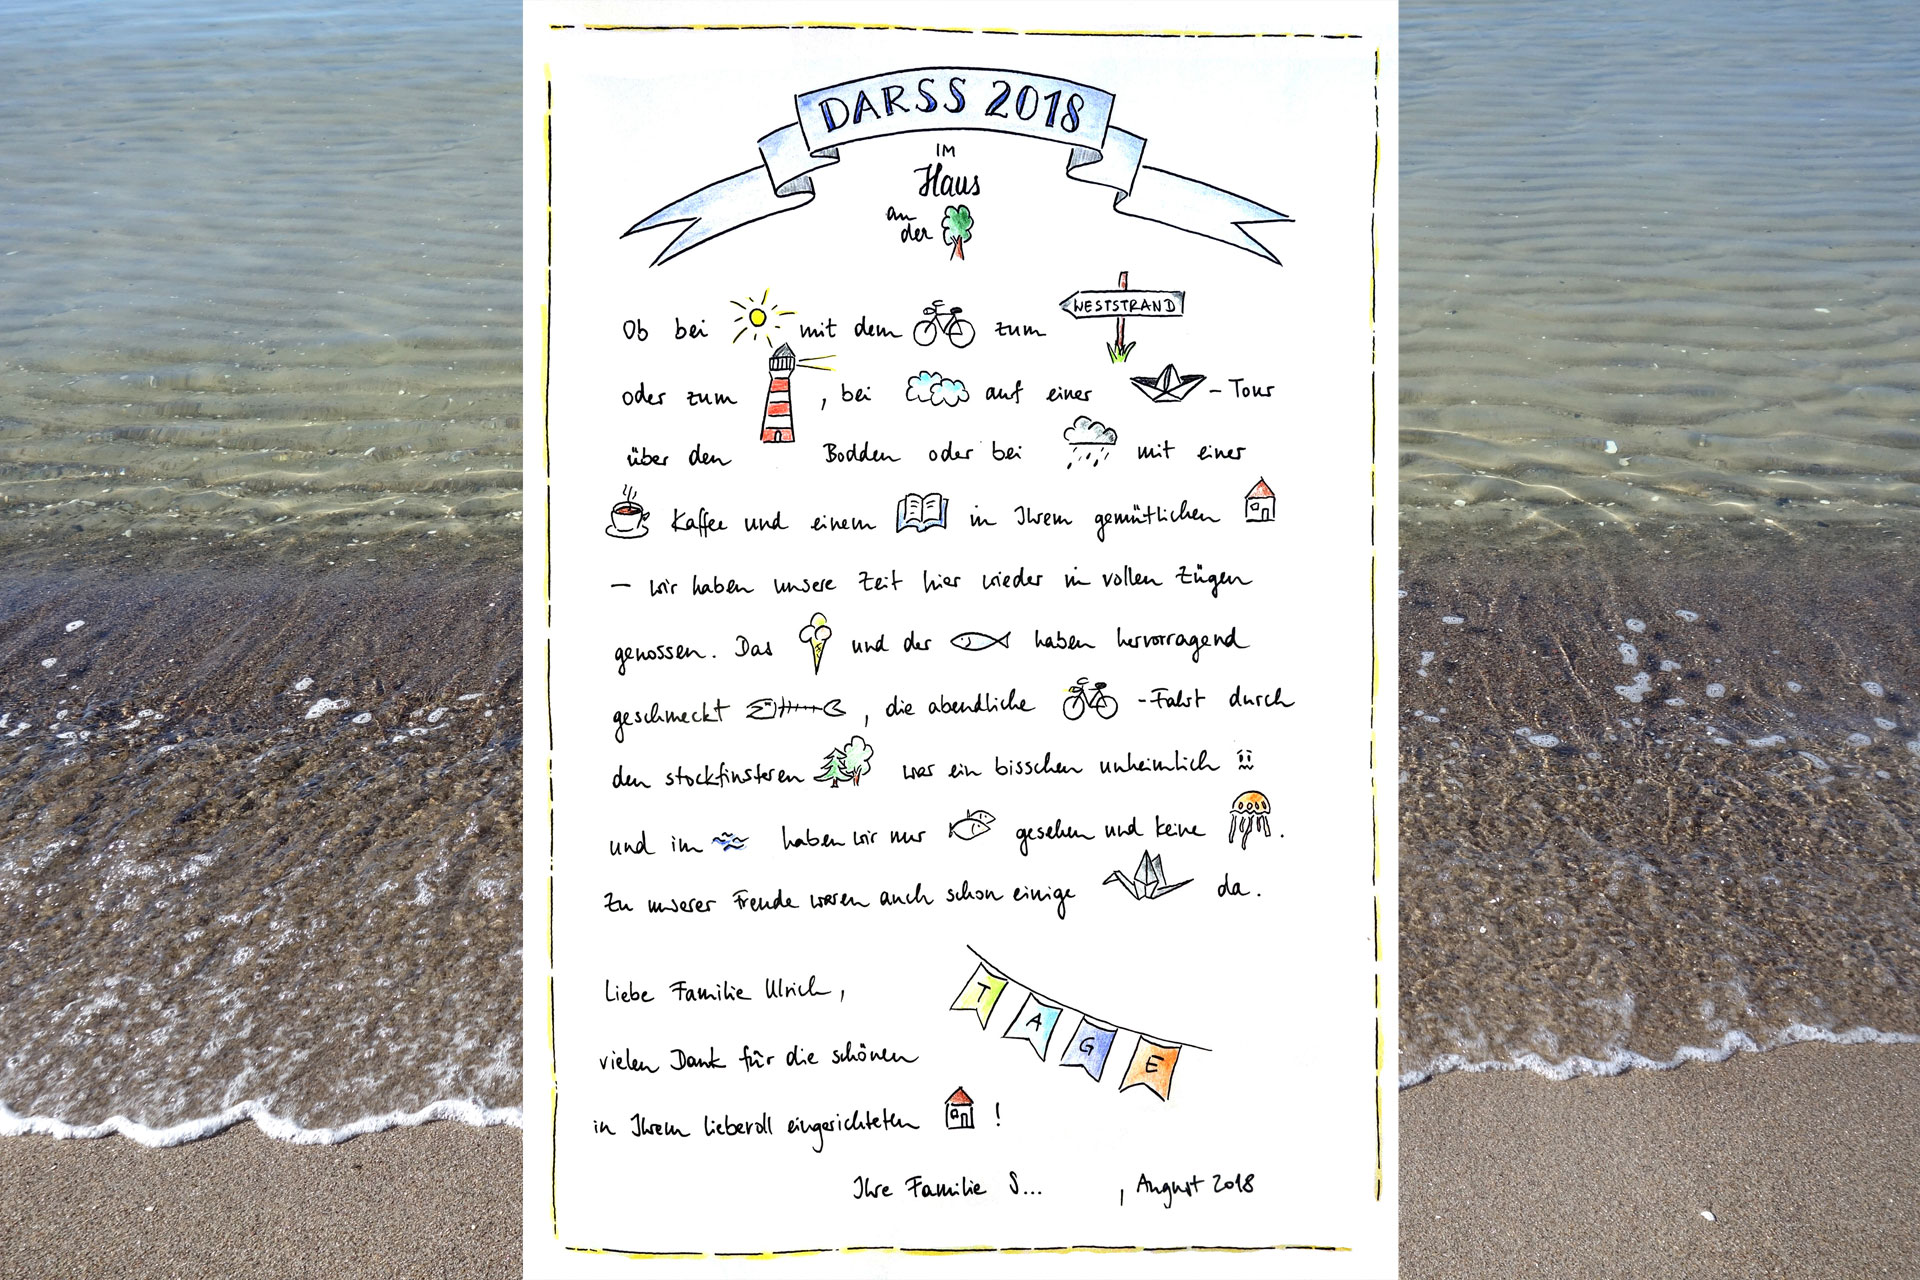 DARSS 2018
IM
Haus
an
der
Ob bei mit dem zum WESTSTRAND
oder zum , bei auf einer - Tour
über den Bodden oder bei mit einer
Kaffee und einem in Ihrem gemütlichen
— wir haben unsere Zeit hier wieder in vollen Zügen
genossen. Das und der haben hervorragend
geschmeckt , die abendliche -Fahrt durch
den stockfinsteren war ein bisschen unheimlich
und im haben wir nur gesehen und keine .
Zu unserer Freude waren auch schon einige da.
Liebe Familie Ulrich,
TAGE
vielen Dank für die schönen
in Ihrem liebevoll eingerichteten !
Ihre Familie S... , August 2018